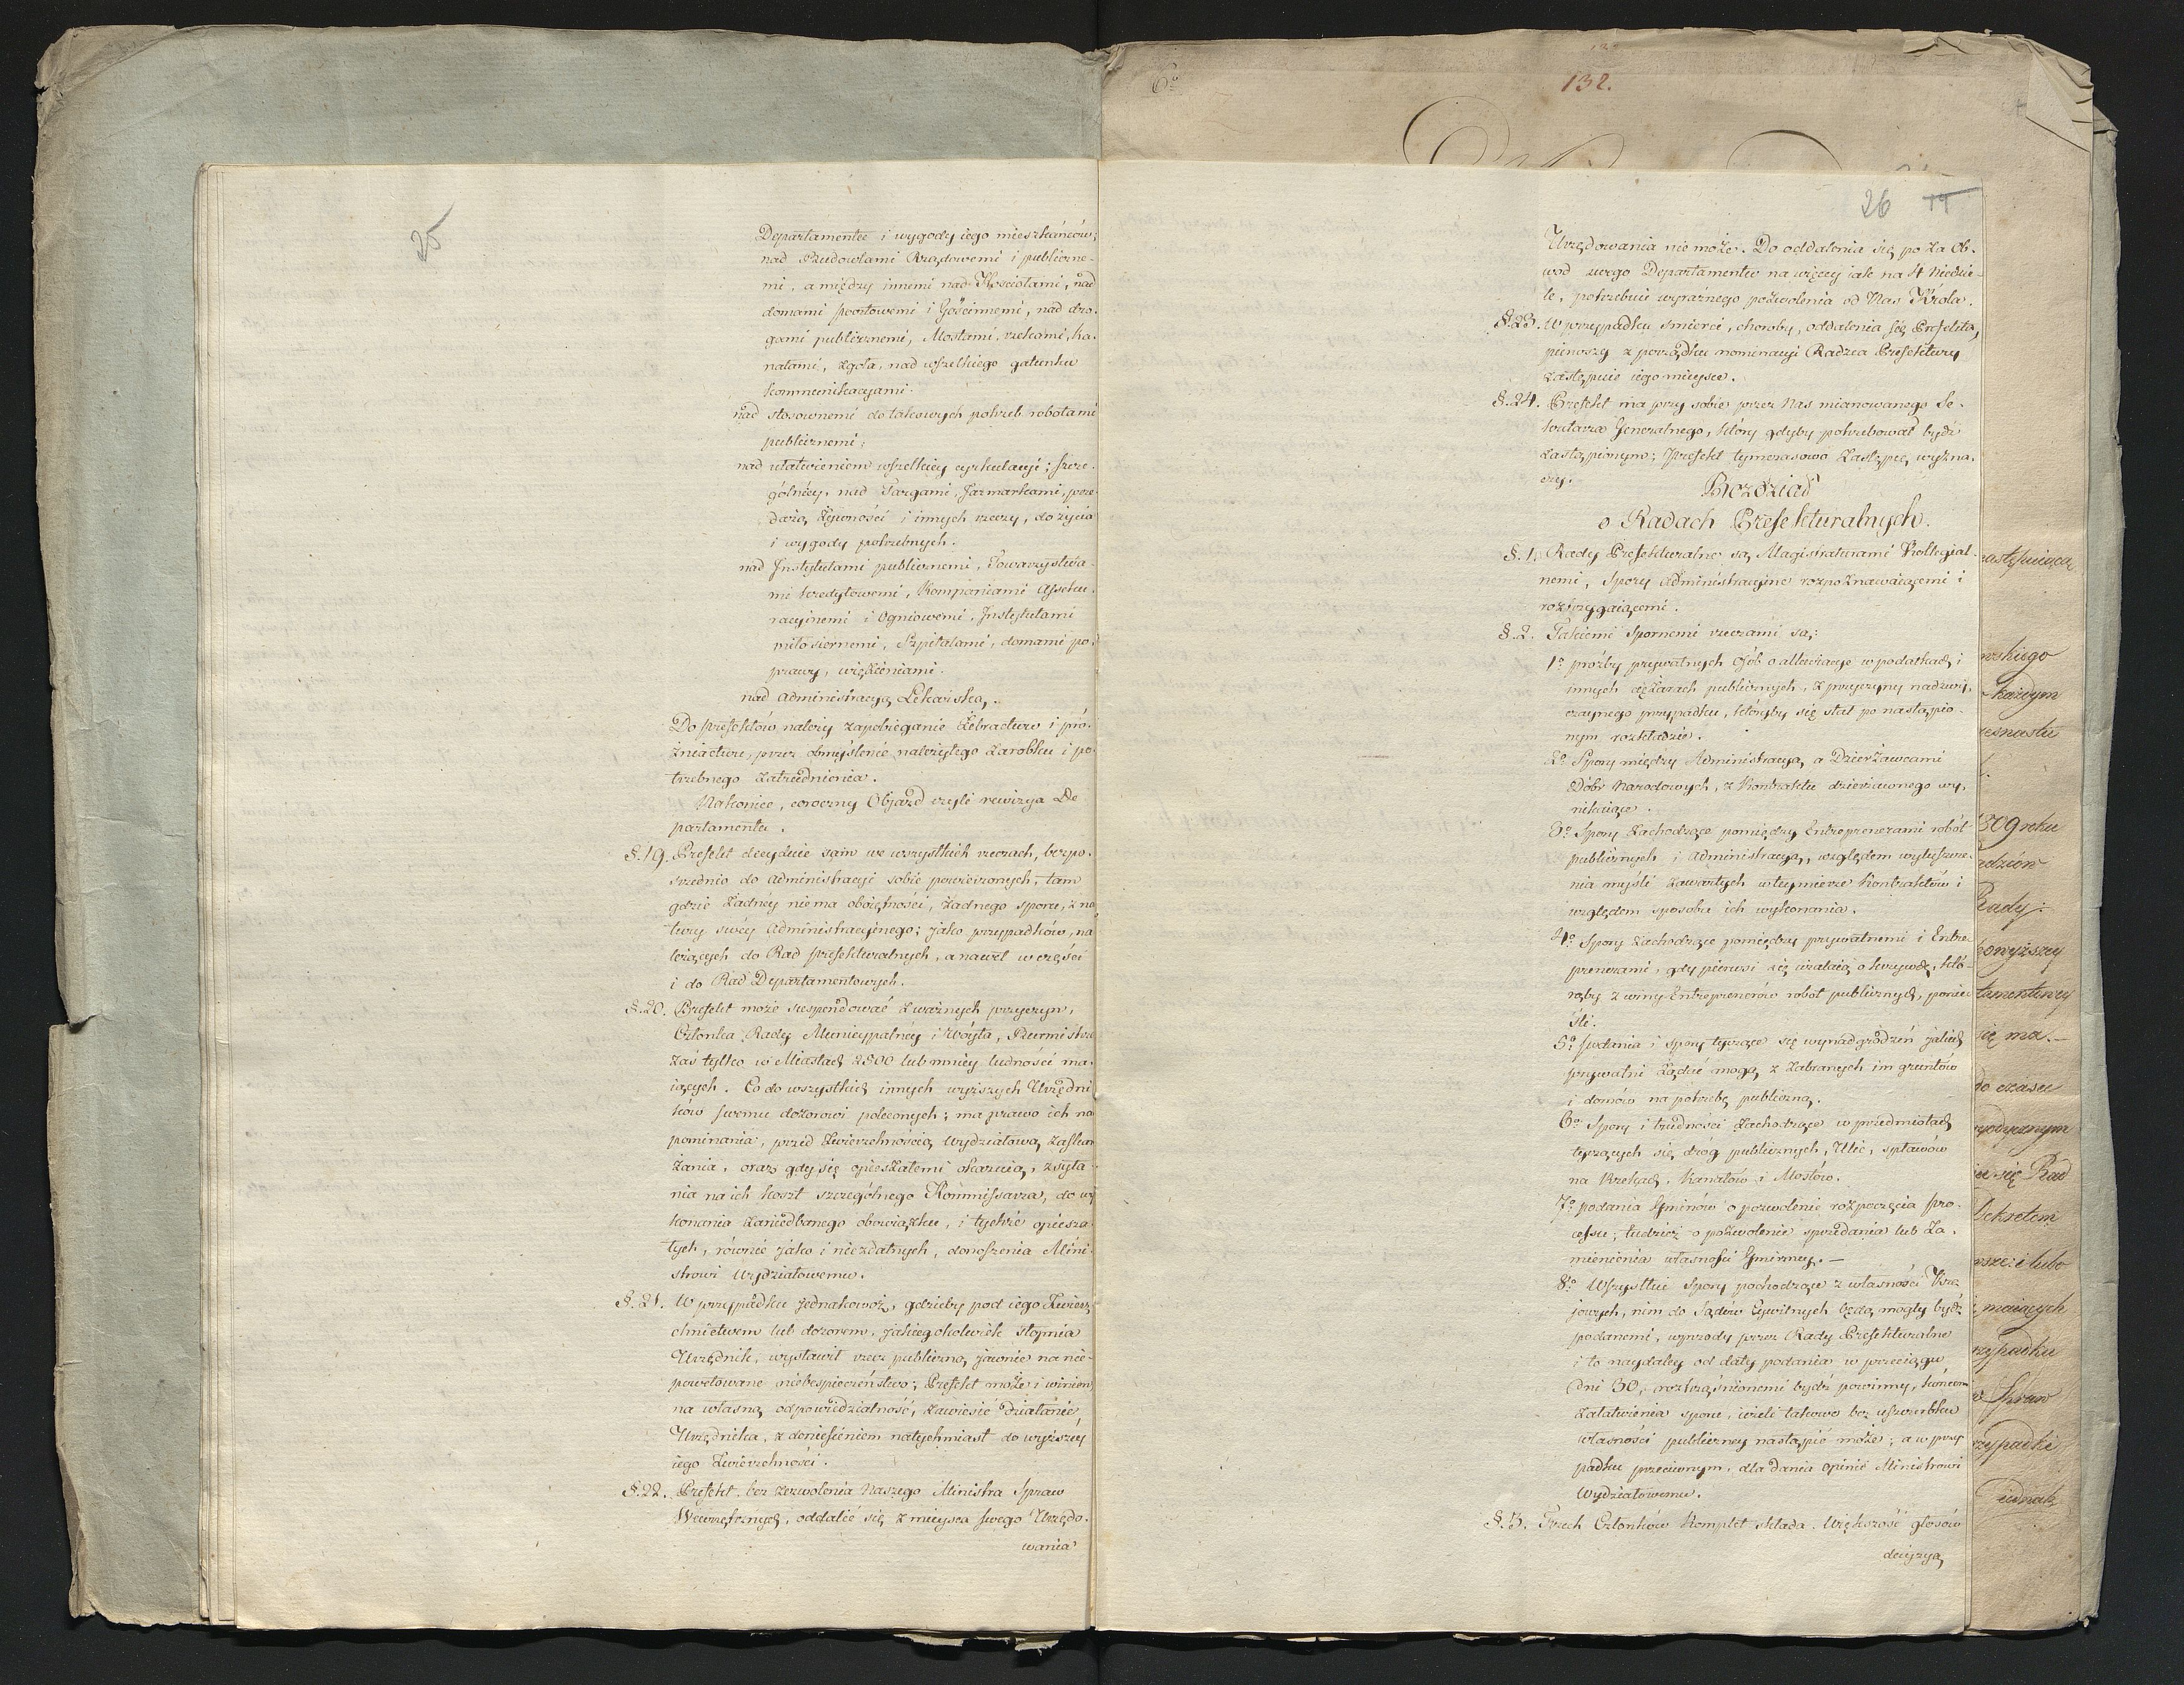 25
Departamentu i wygody iego mieszkańców;
nad Budowlami Rządowemi i publiczne-
mi, a między innemi nad Kościołami, nad
domami pocztowemi i Gościnnemi, nad dro-
gami publicznemi, Mostami, rzekami, ka-
nałami, zgoła, nad wszelkiego gatunku
kommunikacyami.
nad stosownemi do takowych potrzeb robotami
publicznemi;
nad ułatwieniem wszelkiey cyrkulacyi; szcze-
gólniéy, nad Targami, Jarmarkami, prze-
dażą żywności i innych rzeczy, do życia
i wygody potrzebnych.
nad Instytutami publicznemi, Towarzystwa-
mi kredytowemi, Kompaniami Asseku-
racyinemi i Ogniowemi, Instytutami
miłosiernemi, Szpitalami, domami po-
prawy, więzieniami.
nad administracyą Lekarską.
Do prefektów należy zapobieganie żebractwu i pró-
żniactwu, przez obmyślenie należytego zarobku i po-
trzebnego zatrudnienia.
Nakoniec, coroczny Objazd czyli rewizya De
partamentu.
§.19. Prefekt decyduie sam we wszystkich rzeczach, bezpo-
średnio do administracyi sobie powierzonych, tam
gdzie żadney nie ma oboiętności, żadnego sporu, z na
tury swéy administracyinego; jako przypadków, na
leżących do Rad prefekturalnych, a nawet w części
i do Rad Departamentowych.
§.20. Prefekt może suspendować z ważnych przyczyn,
Członka Rady Municypalnéy i Wóyta, Burmistrza
zaś tylko w Miastach 2500 lub mniéy ludności ma-
iących. Co do wszystkich innych wyższych Urzędni
ków swemu dozorowi poleconych; ma prawo ich na
pominania, przed Zwierzchnością Wydziałową zaskar
żania, oraz gdy się opieszałemi okazuią, zsyła-
nia na ich koszt szczególnego Kommissarza, do wy
konania zaniedbanego obowiązku, i tychże opiesza-
łych, równie jako i niezdatnych, donoszenia Mini-
strowi Wydziałowemu.
§.21. W przypadku jednakowoż, gdzieby pod iego Zwierz
chnictwem lub dozorem, jakiegokolwiek stopnia
Urzędnik, wystawił rzecz publiczną jawnie na nie-
powetowane niebespieczeństwo; Prefekt może i winien
na własną odpowiedzialność, zawiesić działanie
Urzędnika, z doniesieniem natychmiast do wyższey
iego Zwierzchności.
§.22. Prefekt bez zezwolenia Naszego Ministra Spraw
Wewnętrznych, oddalić się z mieysca swego Urzędo-
wania
6º
132.
26 14
Urzędowania nie może. Do oddalenia się po za Ob-
wod swego Departamentu na więcey iak na 4 Niedzie-
le, potrzebuie wyraźnego pozwolenia od Nas Króla.
§.23. W przypadku śmierci, choroby, oddalenia się Prefekta,
pierwszy z porządku nominacyi Radzca Prefektury
zastępuie iego mieysce.
§.24. Prefekt ma przy sobie przez Nas mianowanego Se-
kretarza Jeneralnego, który gdyby potrzebował bydź
zastąpionym; Prefekt tymczasowo zastępcę wyzna-
czy.
Rozdział
o Radach Prefekturalnych.
§.1. Rady Prefekturalne są Magistraturami Kollegial-
nemi, Spory administracyine rozpoznawaiącemi i
rozstrzygaiącemi.
§.2. Takiemi Spornemi rzeczami są:
1º prośby prywatnych Osób o allewiacye w podatkach i
innych ciężarach publicznych, z przyczyny nadzwy-
czaynego przypadku, któryby się stał po nastąpio-
nym rozkładzie.
2º Spory między Administracyą a Dzierżawcami
Dóbr Narodowych, z Kontraktu dzierżawnego wy-
nikaiące.
3º Spory zachodzące pomiędzy Entreprenerami robót
publicznych i administracyą, względem wytłumacze-
nia myśli zawartych w teymierze Kontraktów i
względem sposobu ich wykonania.
4º Spory zachodzące pomiędzy prywatnemi i Entre-
prenerami, gdy pierwsi się użalaią o krzywdę, któ-
rąby z winy Entreprenerów robot publicznych, ponie-
śli.
5º żądania i spory tyczące się wynadgrodzeń jakich
prywatni żądać mogą z zabranych im gruntów
i domów na potrzebę publiczną.
6º Spory i trudności zachodzące w przedmiotach
tyczących się dróg publicznych, Ulic, spławów
na Rzekach, Kanałów i Mostów.
7º podania Gminów o pozwolenie rozpoczęcia pro-
cessu, tudzież o pozwolenie sprzedania lub za-
mienienia własności Gminney.—
8º Wszystkie Spory pochodzące z własności Kra
jowych, nim do Sądów Cywilnych będą mogły bydź
podanemi, wprzody przez Rady Prefekturalne
i to naydaley od daty podania w przeciągu
dni 30, roztrząśnionemi bydź powinny, końcem
załatwienia sporu, ieżeli takowe bez uszczerbku
własności publiczney nastąpić może; a w przy
padku przeciwnym, dla dania opinii Ministrowi
Wydziałowemu.
§.3. Trzech Członków Komplet składa. Większość głosów
decyzyą
każdym
Rady:
się ma.—
do czasu
się Rad